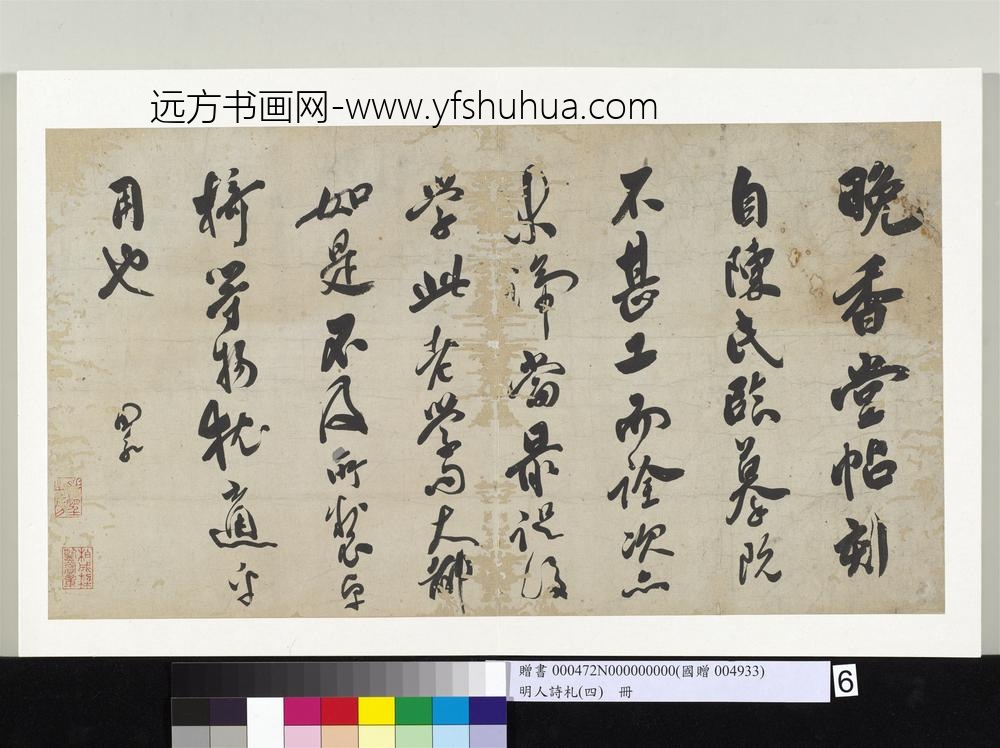 远方书画网-www.yfshuhua.com
晚香堂帖刻
自陳氏臨摹既
不甚工而詮次亦
未諦當最誤後
学此老学問大雅
如是不及所製卓
椅等物猶適乎
用也
贈書 000472N000000000(國贈 004933)
明人詩札(四) 冊
6